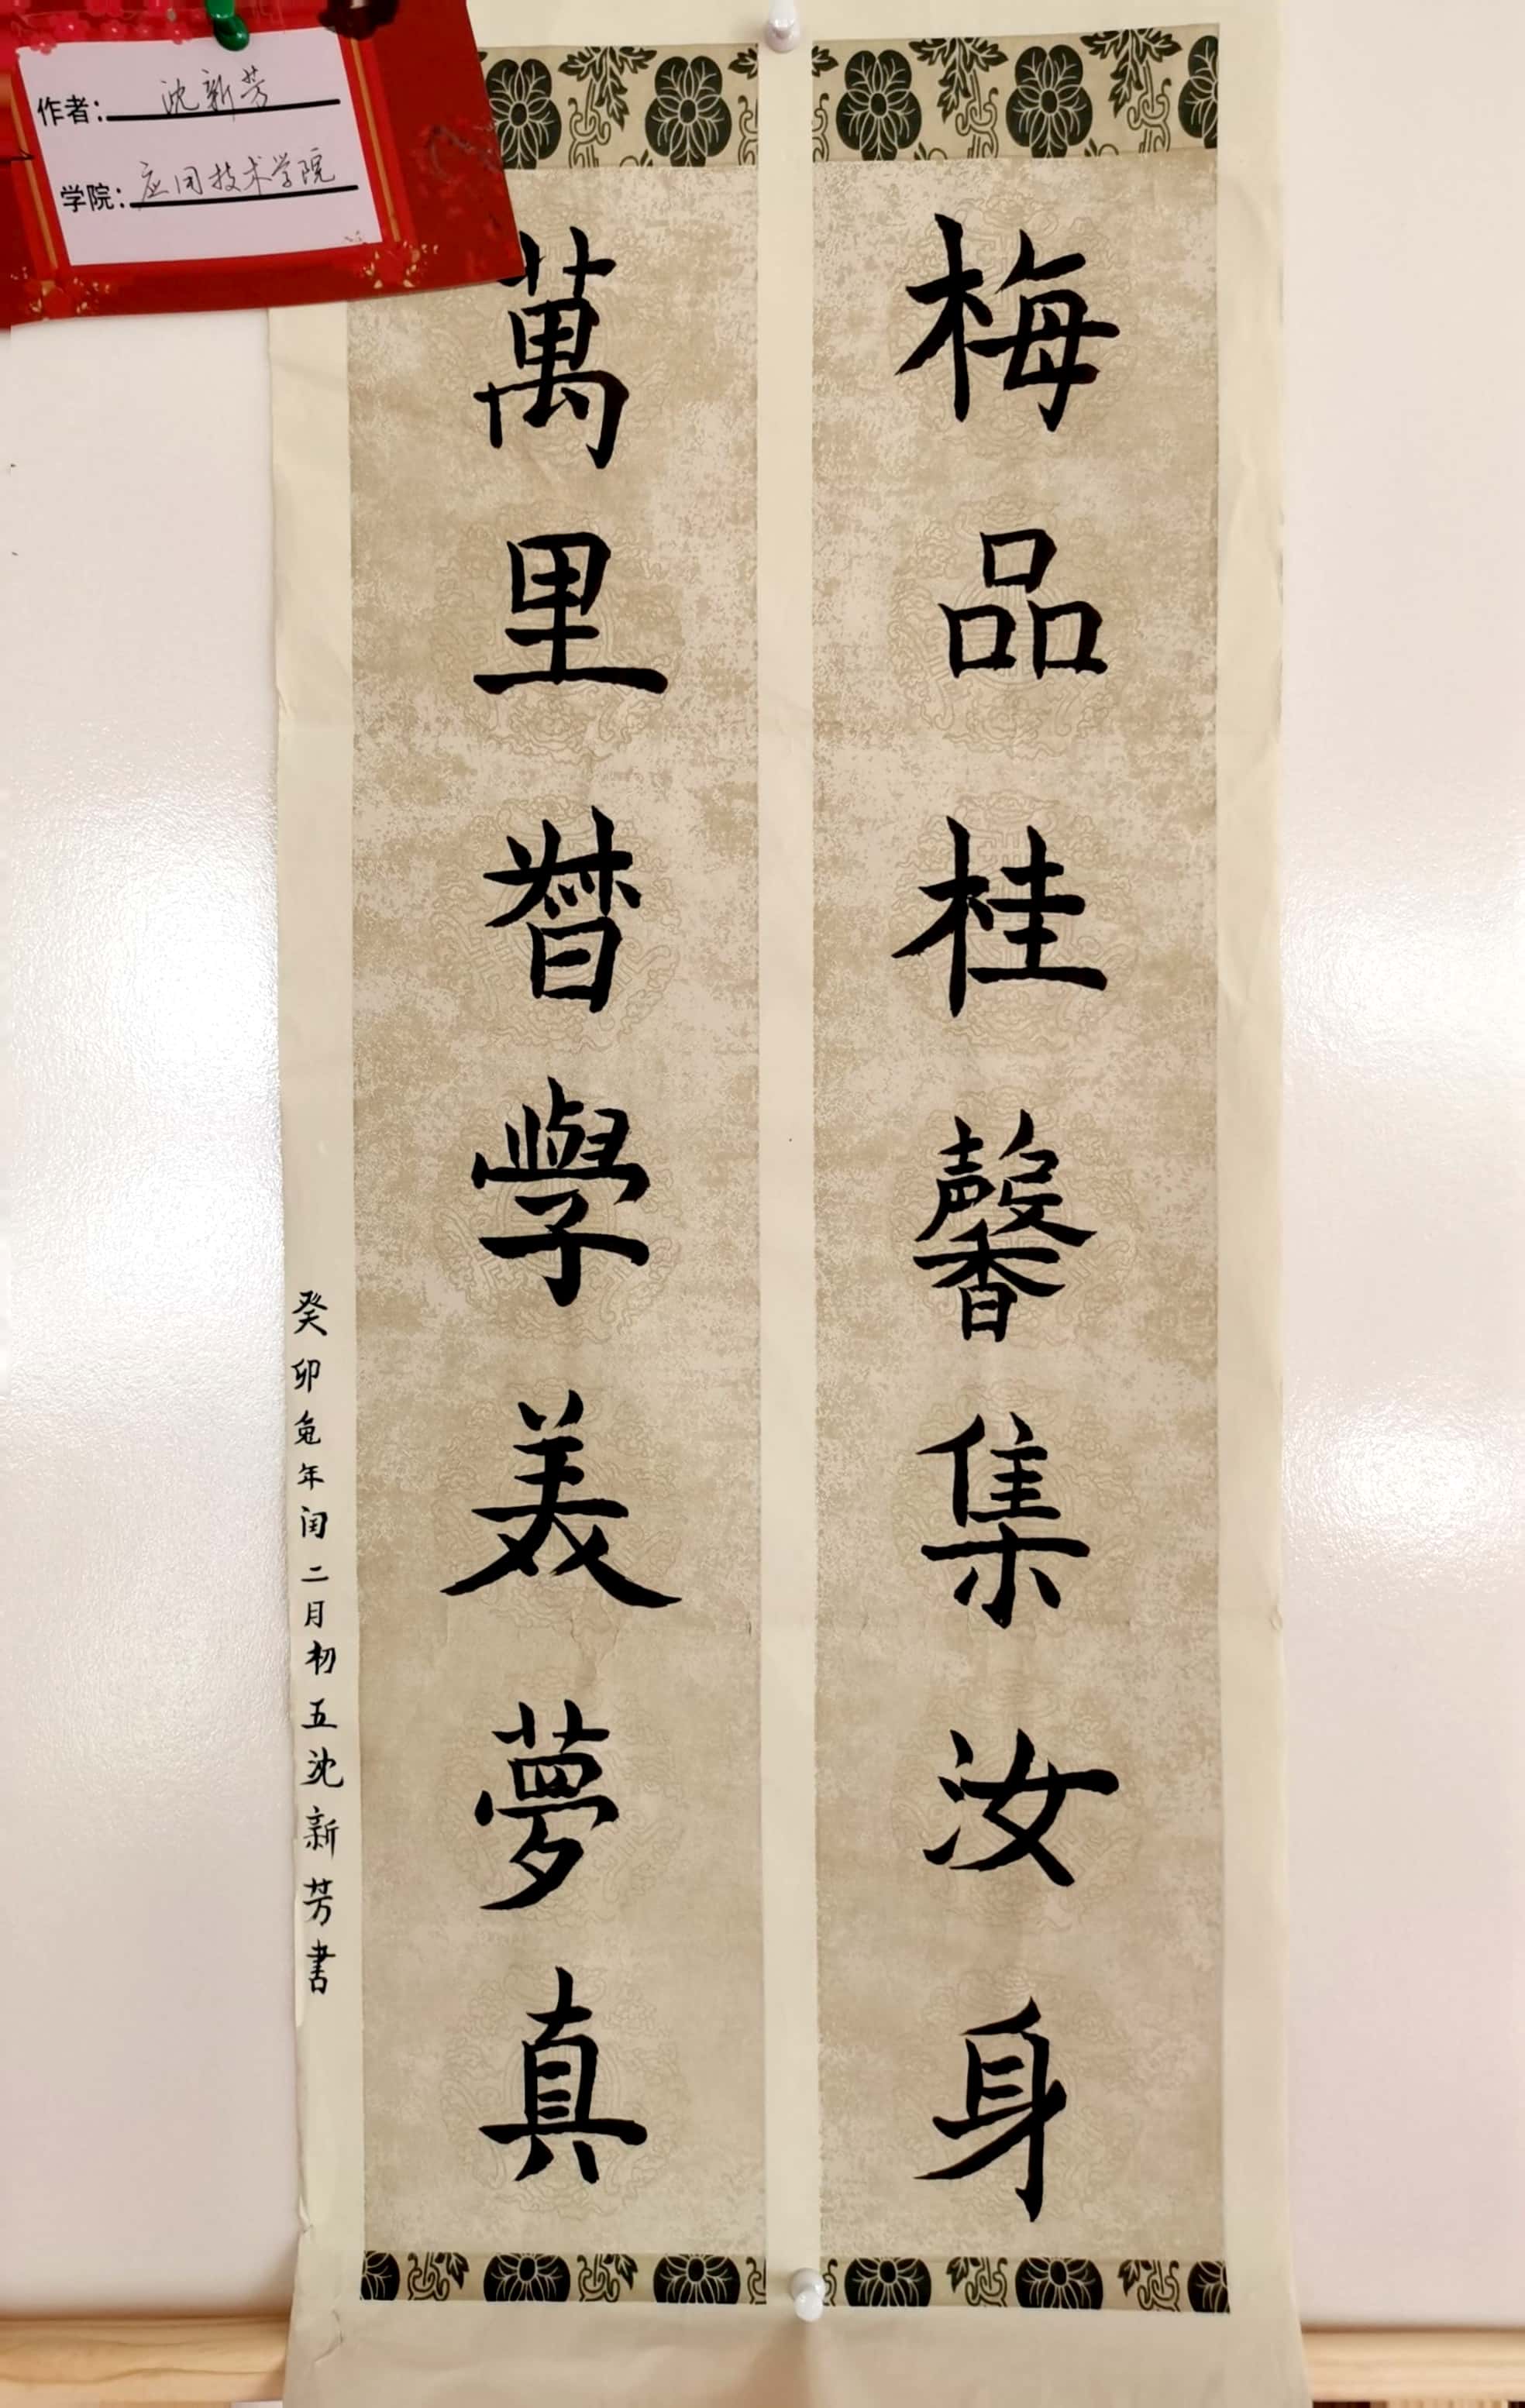 作者：沈新芳
学院：应用技术学院
梅品桂馨集汝身
萬里學美夢真
癸卯兔年闰二月初五沈新芳書